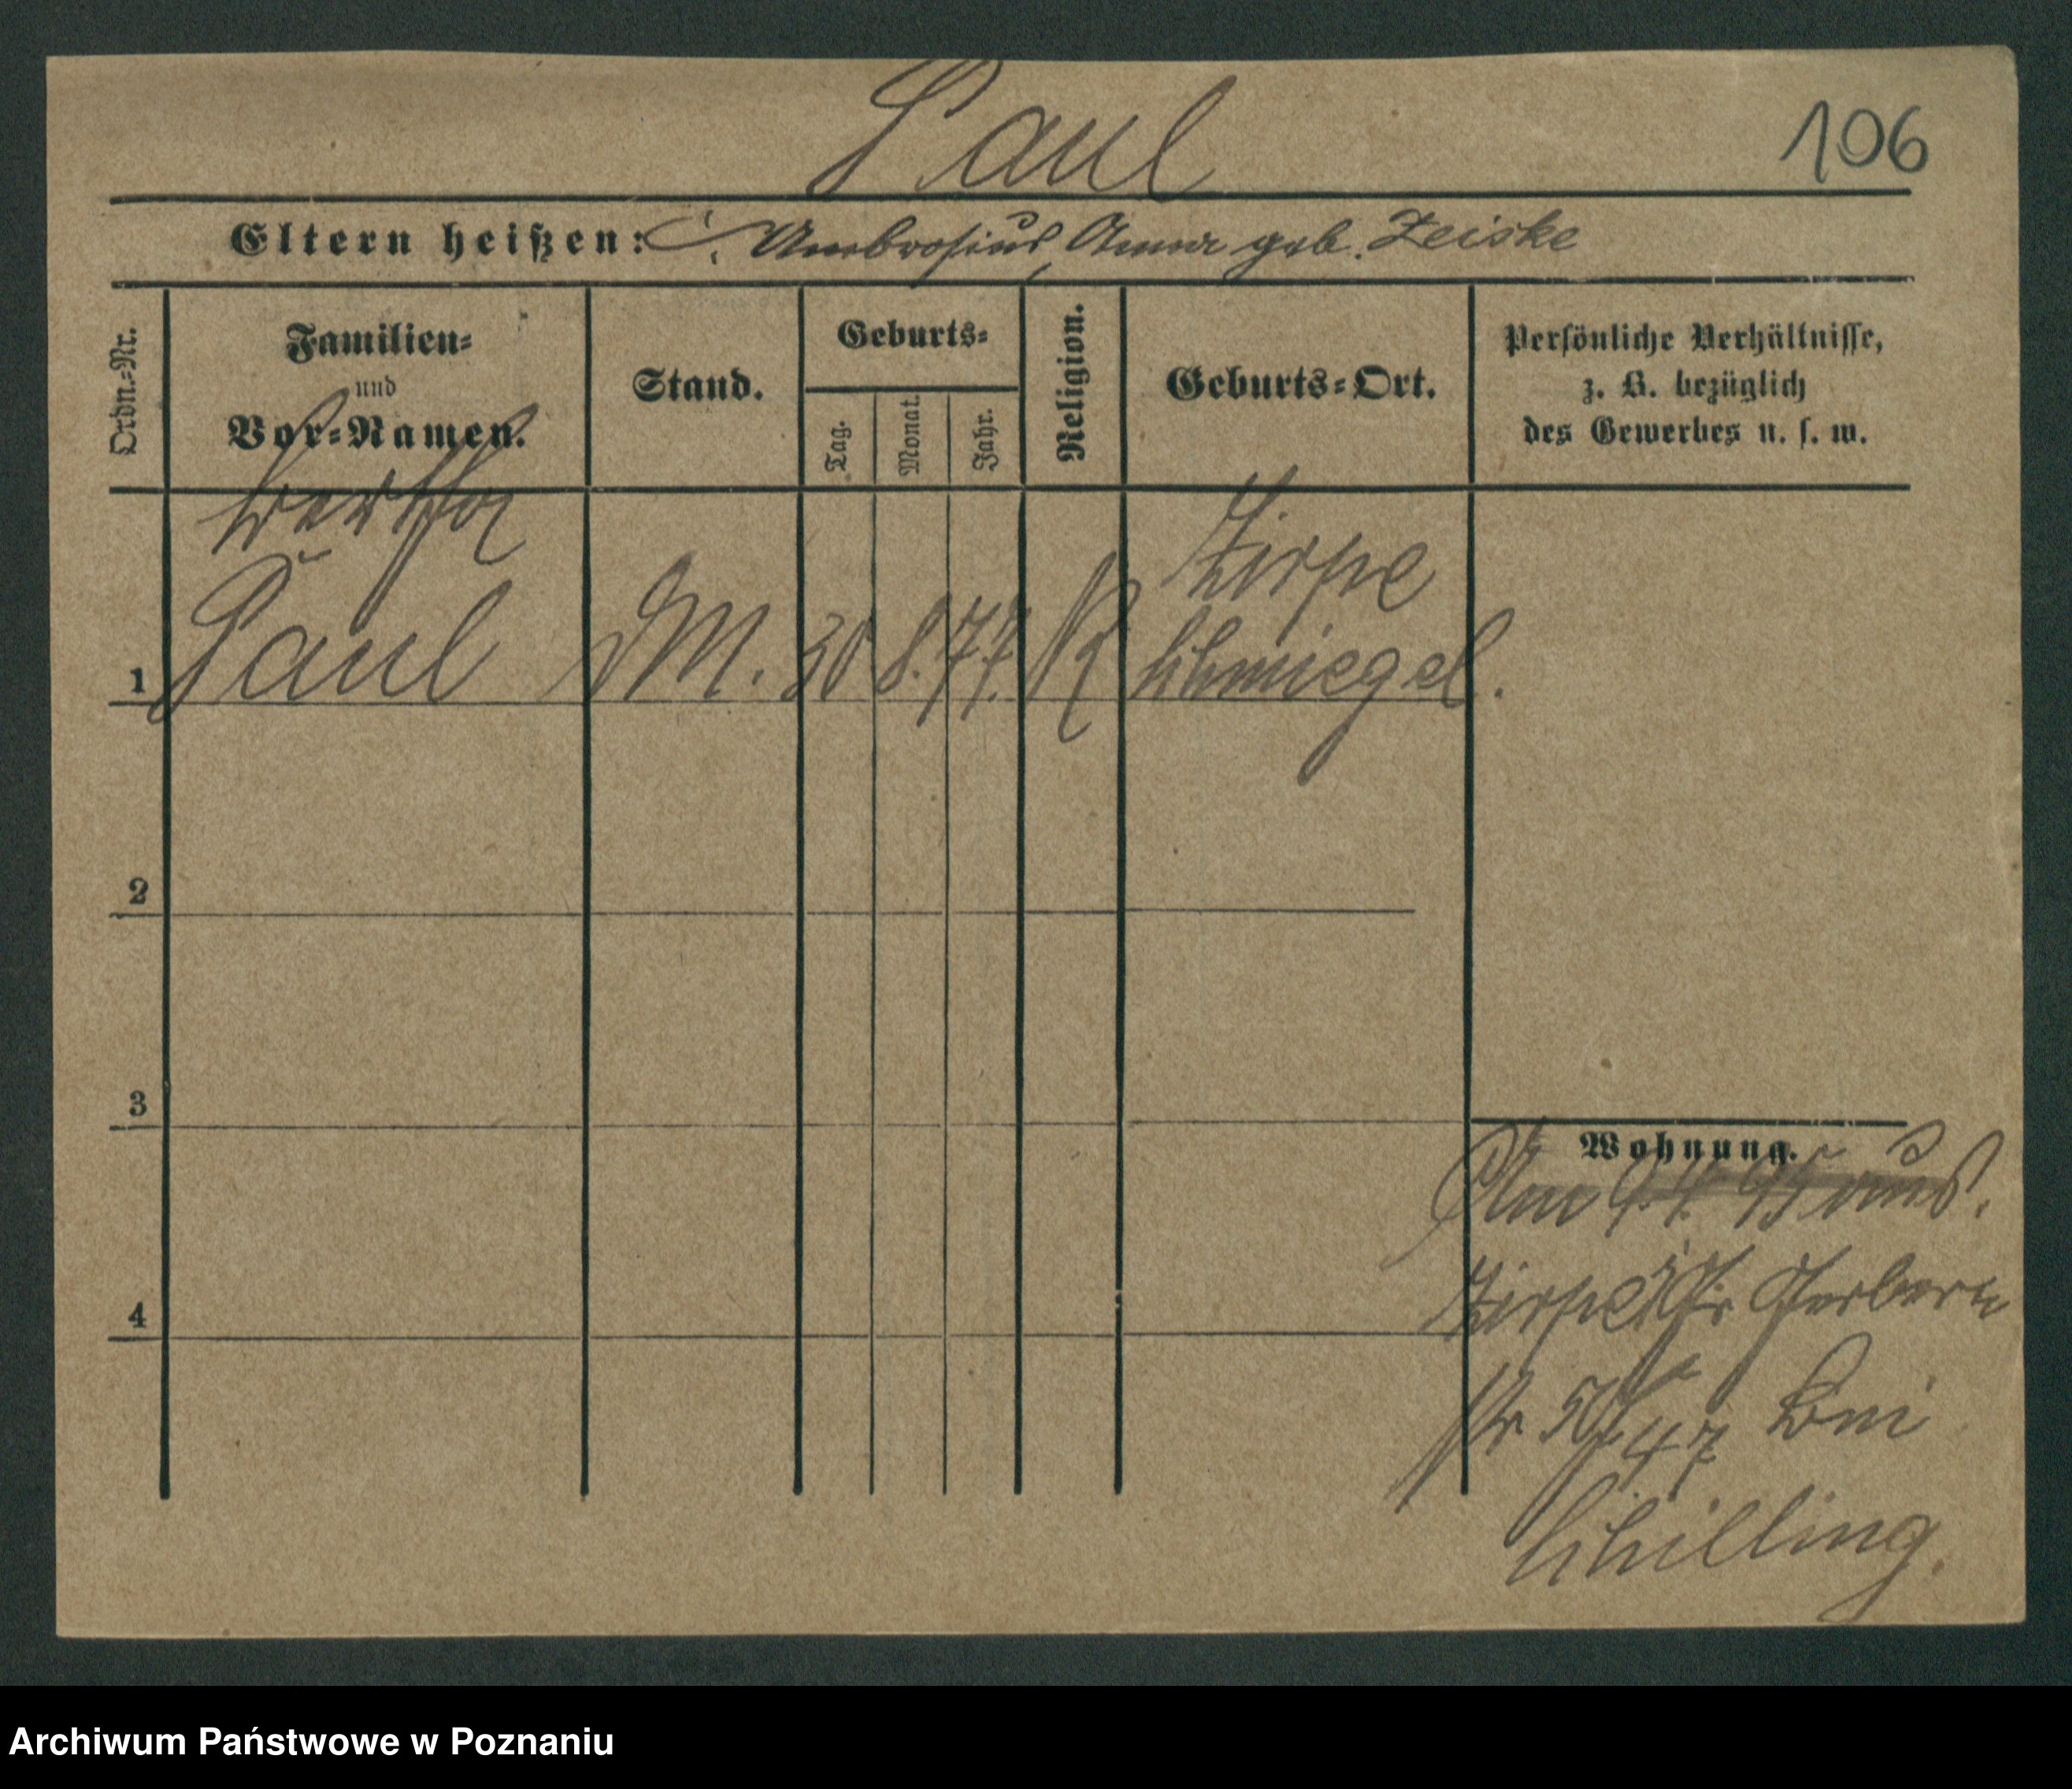 Paul
106
Eltern heißen: Ambrosius, Anna geb. Zeiske
Ordn.-Nr.
Familien-
und
Vor-Namen.
Stand.
Geburts-
Tag.
Monat.
Jahr.
Religion.
Geburts-Ort.
Persönliche Verhältnisse,
z. B. bezüglich
des Gewerbes u. s. w.
Bertha
Zirpe
1 Paul M. 30 8. 77. K Schmiegel.
2
3
Wohnung.
Am 9.4. 95 aus.
Zirpe Gerber
Nr 50/47 bei
Schilling.
4
Archiwum Państwowe w Poznaniu